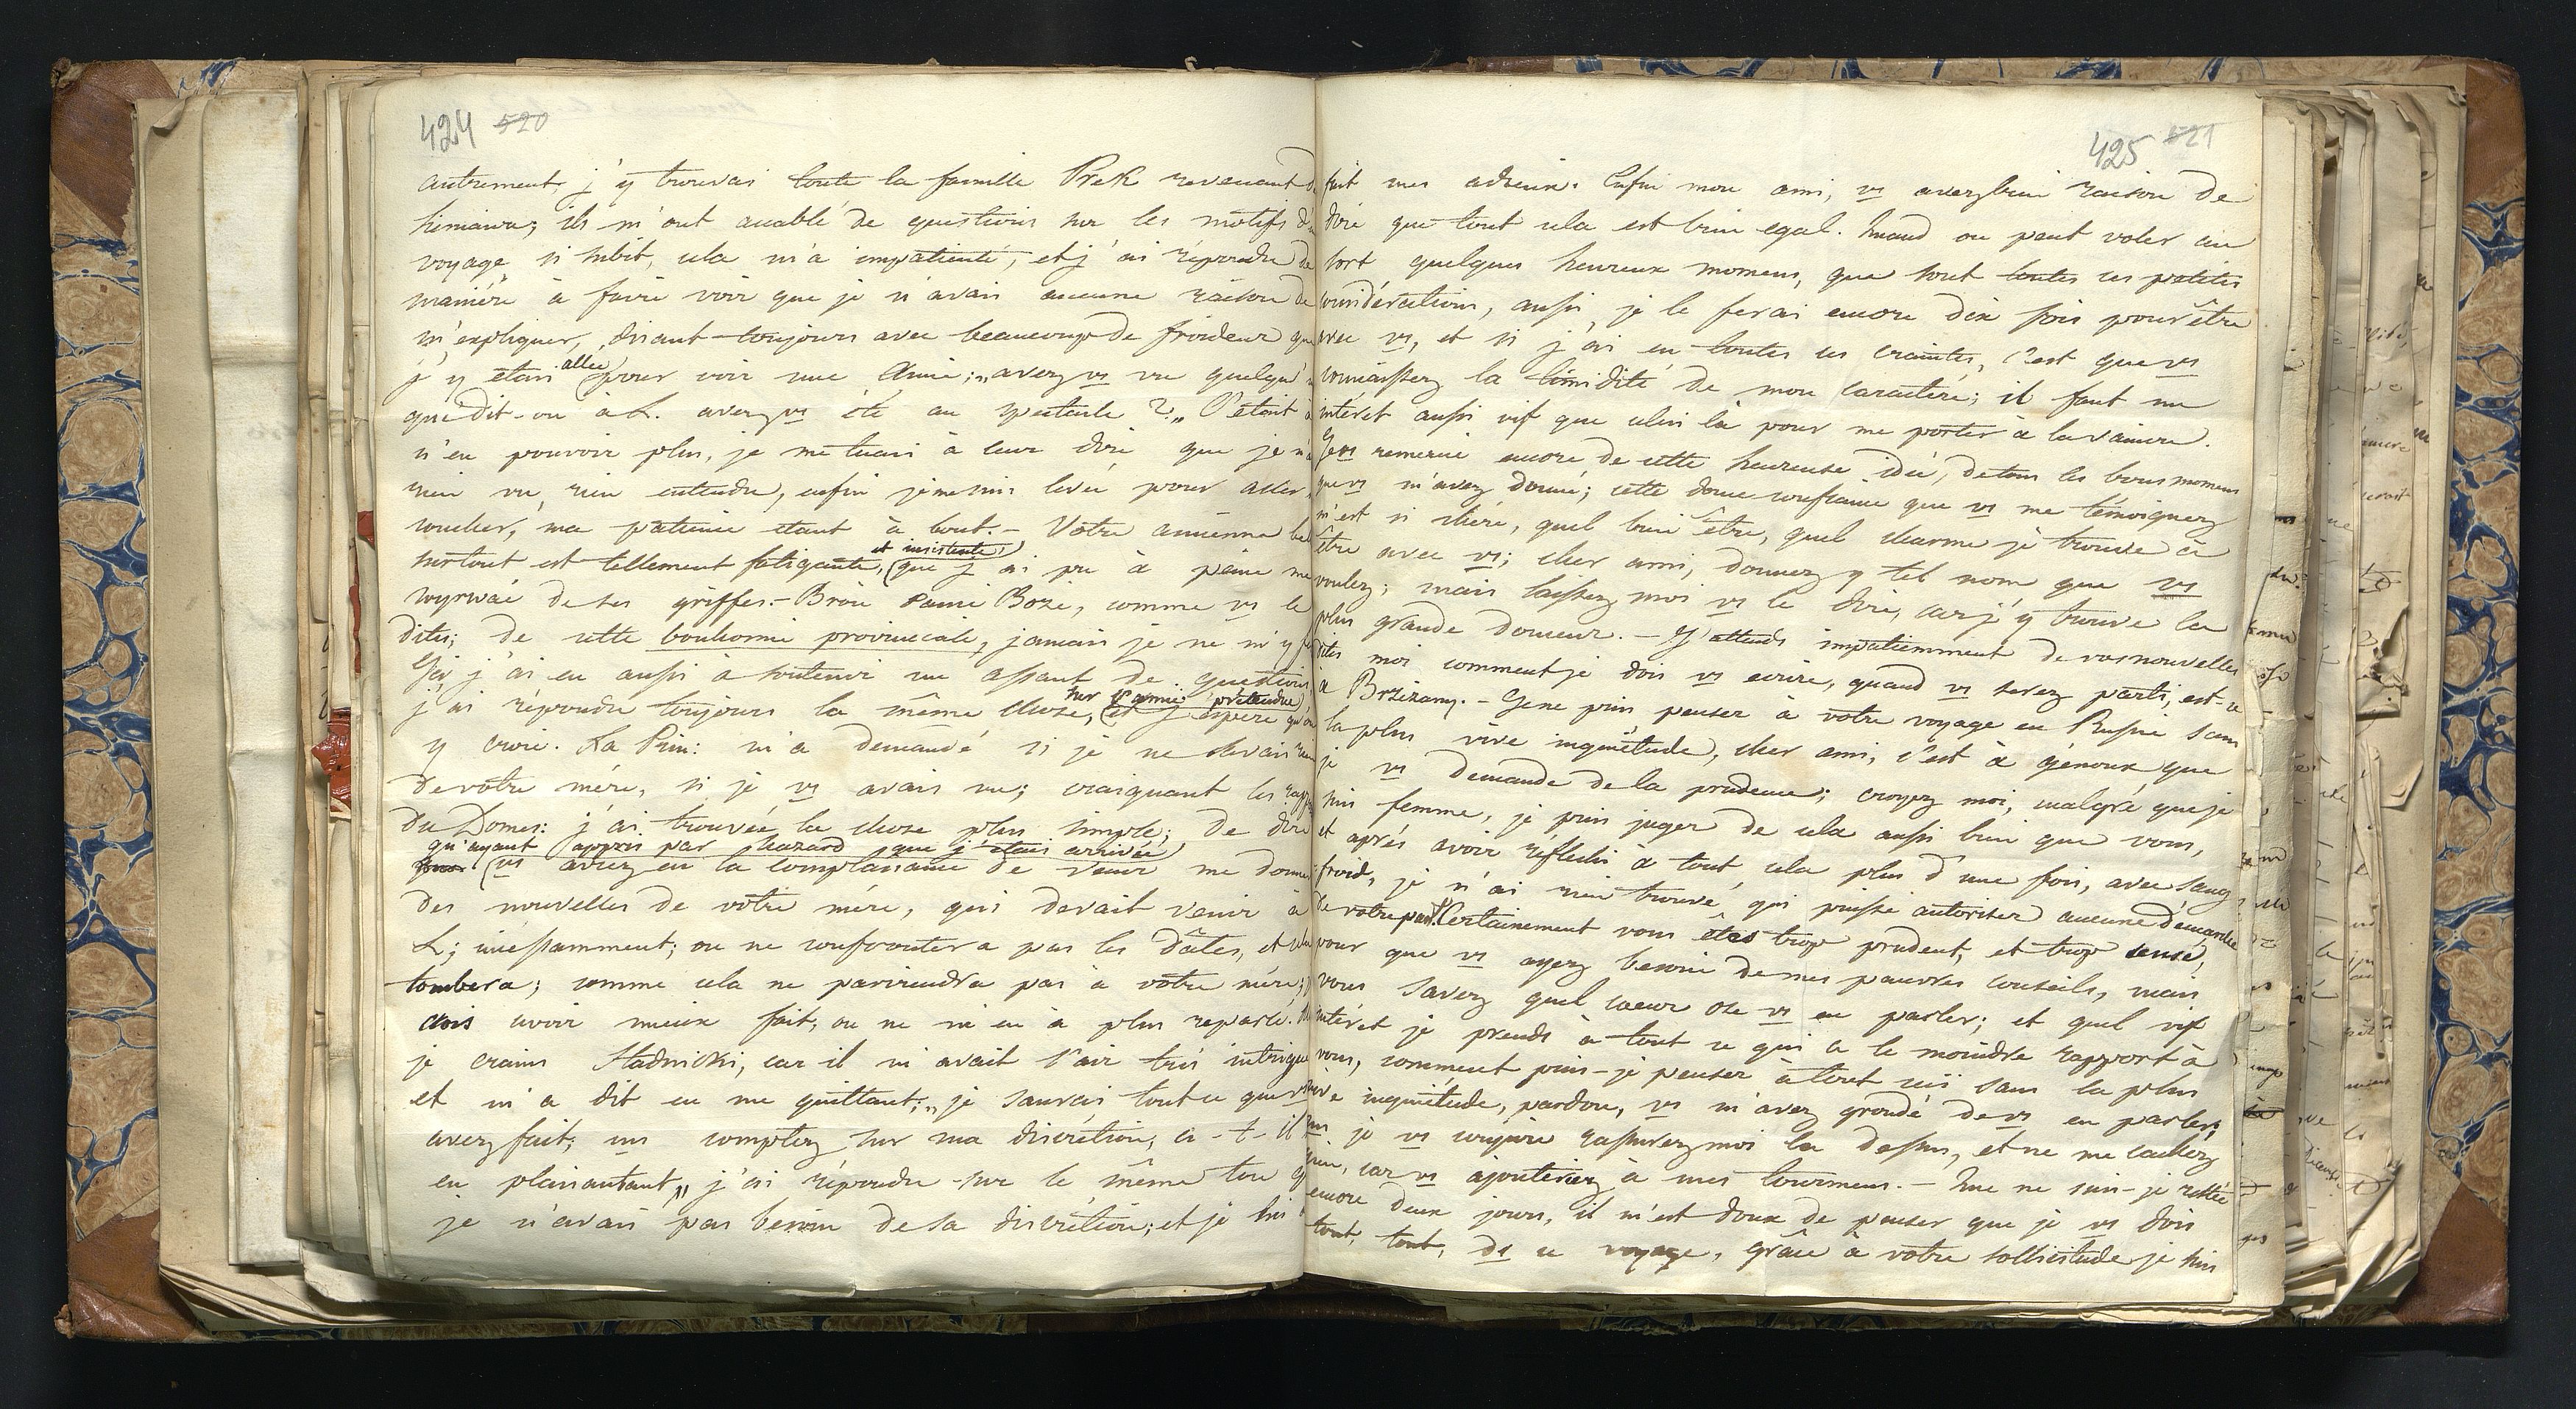 424 520
autrement, j'y trouvai toute la famille Prek revenant d
Sieniawa; ils m'ont accablé de questions sur les motifs d'
voyage si subit, cela m'a impatienté, et j'ai répondu de
manière à faire voir que je n'avais aucune raison de
m'expliquer, disant toujours avec beaucoup de froideur que
allée
j'y étais pour voir une Amie; „avez vs vu quelqu'
que dit-on à L. avez vs été au spectacle?„ C'était à
n'en pouvoir plus, je me tuais à leur dire que je n'
rien vu, rien entendu, enfin je me suis levée pour aller
coucher, ma patience étant à bout. - Votre ancienne
et insistente,
surtout est tellement fatigante, que j'ai pu à peine me
wyrwać de ses griffes. - Broń Panie Boże, comme vs le
dites; de cette bonhomie provinciale, jamais je ne m'y
Ici j'ai eu aussi à soutenir un assaut de questions,
sur l'amie prétendue
j'ai répondu toujours la même chose, et j'espère qu'on
y croie. La Prin: m'a demandé si je ne savais rien
de votre mère, si je vs avais vu; craignant les
Du Domes: j'ai trouvée la chose plus simple; De dire
qu'ayant appris par hazard que j'étais arrivée
vs aviez eu la complaisance de venir me donner
des nouvelles de votre mère, qui devait venir à
L; incessamment; on ne confrontera pas les dâtes, et cela
tombera; comme cela ne parviendra pas à votre mère;
crois avoir mieux fait, on ne m'en à plus reparlé.
je crains Stadnicki, car il m'avait l'air très intrigué
et m'a dit en me quittant; „je saurai tout ce que vs
avez fait; mais comptez sur ma discrétion, a-t-il
en plaisantant„ j'ai répondu sur le même ton q
je n'avais pas besoin de sa discrétion; et je lui
425 521
fait mes adieux. Enfin mon ami, vs avez bien raison de
dire que tout cela est bien egal. Quand on peut voler au
sort quelques heureux momens, que sont toutes ces petites
considérations, aussi je le ferai encore dix fois pour être
avec vs, et si j'ai eu toutes ces craintes, c'est que vs
connaissez la timidité de mon caractère; il faut un
intéret aussi vif que celui là pour me porter à la vaincre.
Je vs remercie encore de cette heureuse idée, de tous les bons momens
que vs m'avez donné; cette douce confiance que vs me témoignez
m'est si chère, quel bien être, quel charme je trouve à
être avec vs; cher ami, donnez y tel nom que vs
voulez; mais laissez moi vs le dire, car j'y trouve la
plus grande douceur. - J'attends impatiemment de vos nouvelles
dites moi comment je dois vs ecrire, quand vs serez parti, est-ce
à Brzeżany. - Je ne puis penser à votre voyage en Russie sans
la plus vive inquiétude, cher ami, c'est à genoux que
je vs demande de la prudence; croyez moi, malgré que je
suis femme, je puis juger de cela aussi bien que vous,
et après avoir réfléchi à tout cela plus d'une fois, avec sang
froid, je n'ai rien trouvé qui puisse autoriser aucune démarche
de votre part. Certainement vous êtes trop prudent, et trop sensé,
pour que vs ayez besoin de mes pauvres conseils, mais
vous savez quel coeur ose vs en parler; et quel vif
intéret je prends à tout ce qui a le moindre rapport à
vous, comment puis-je penser à tout ceci sans la plus
vive inquiétude, pardon, vs m'avez grondé de vs en parler;
mais je vs conjure rassurez moi la dessus, et ne me cachez
rien, car vs ajouteriez à mes tourmens. - Que ne suis-je restée
encore deux jours, il m'est doux de penser que je vs dois
tout, tout, ds ce voyage, grâce à votre sollicitude je suis